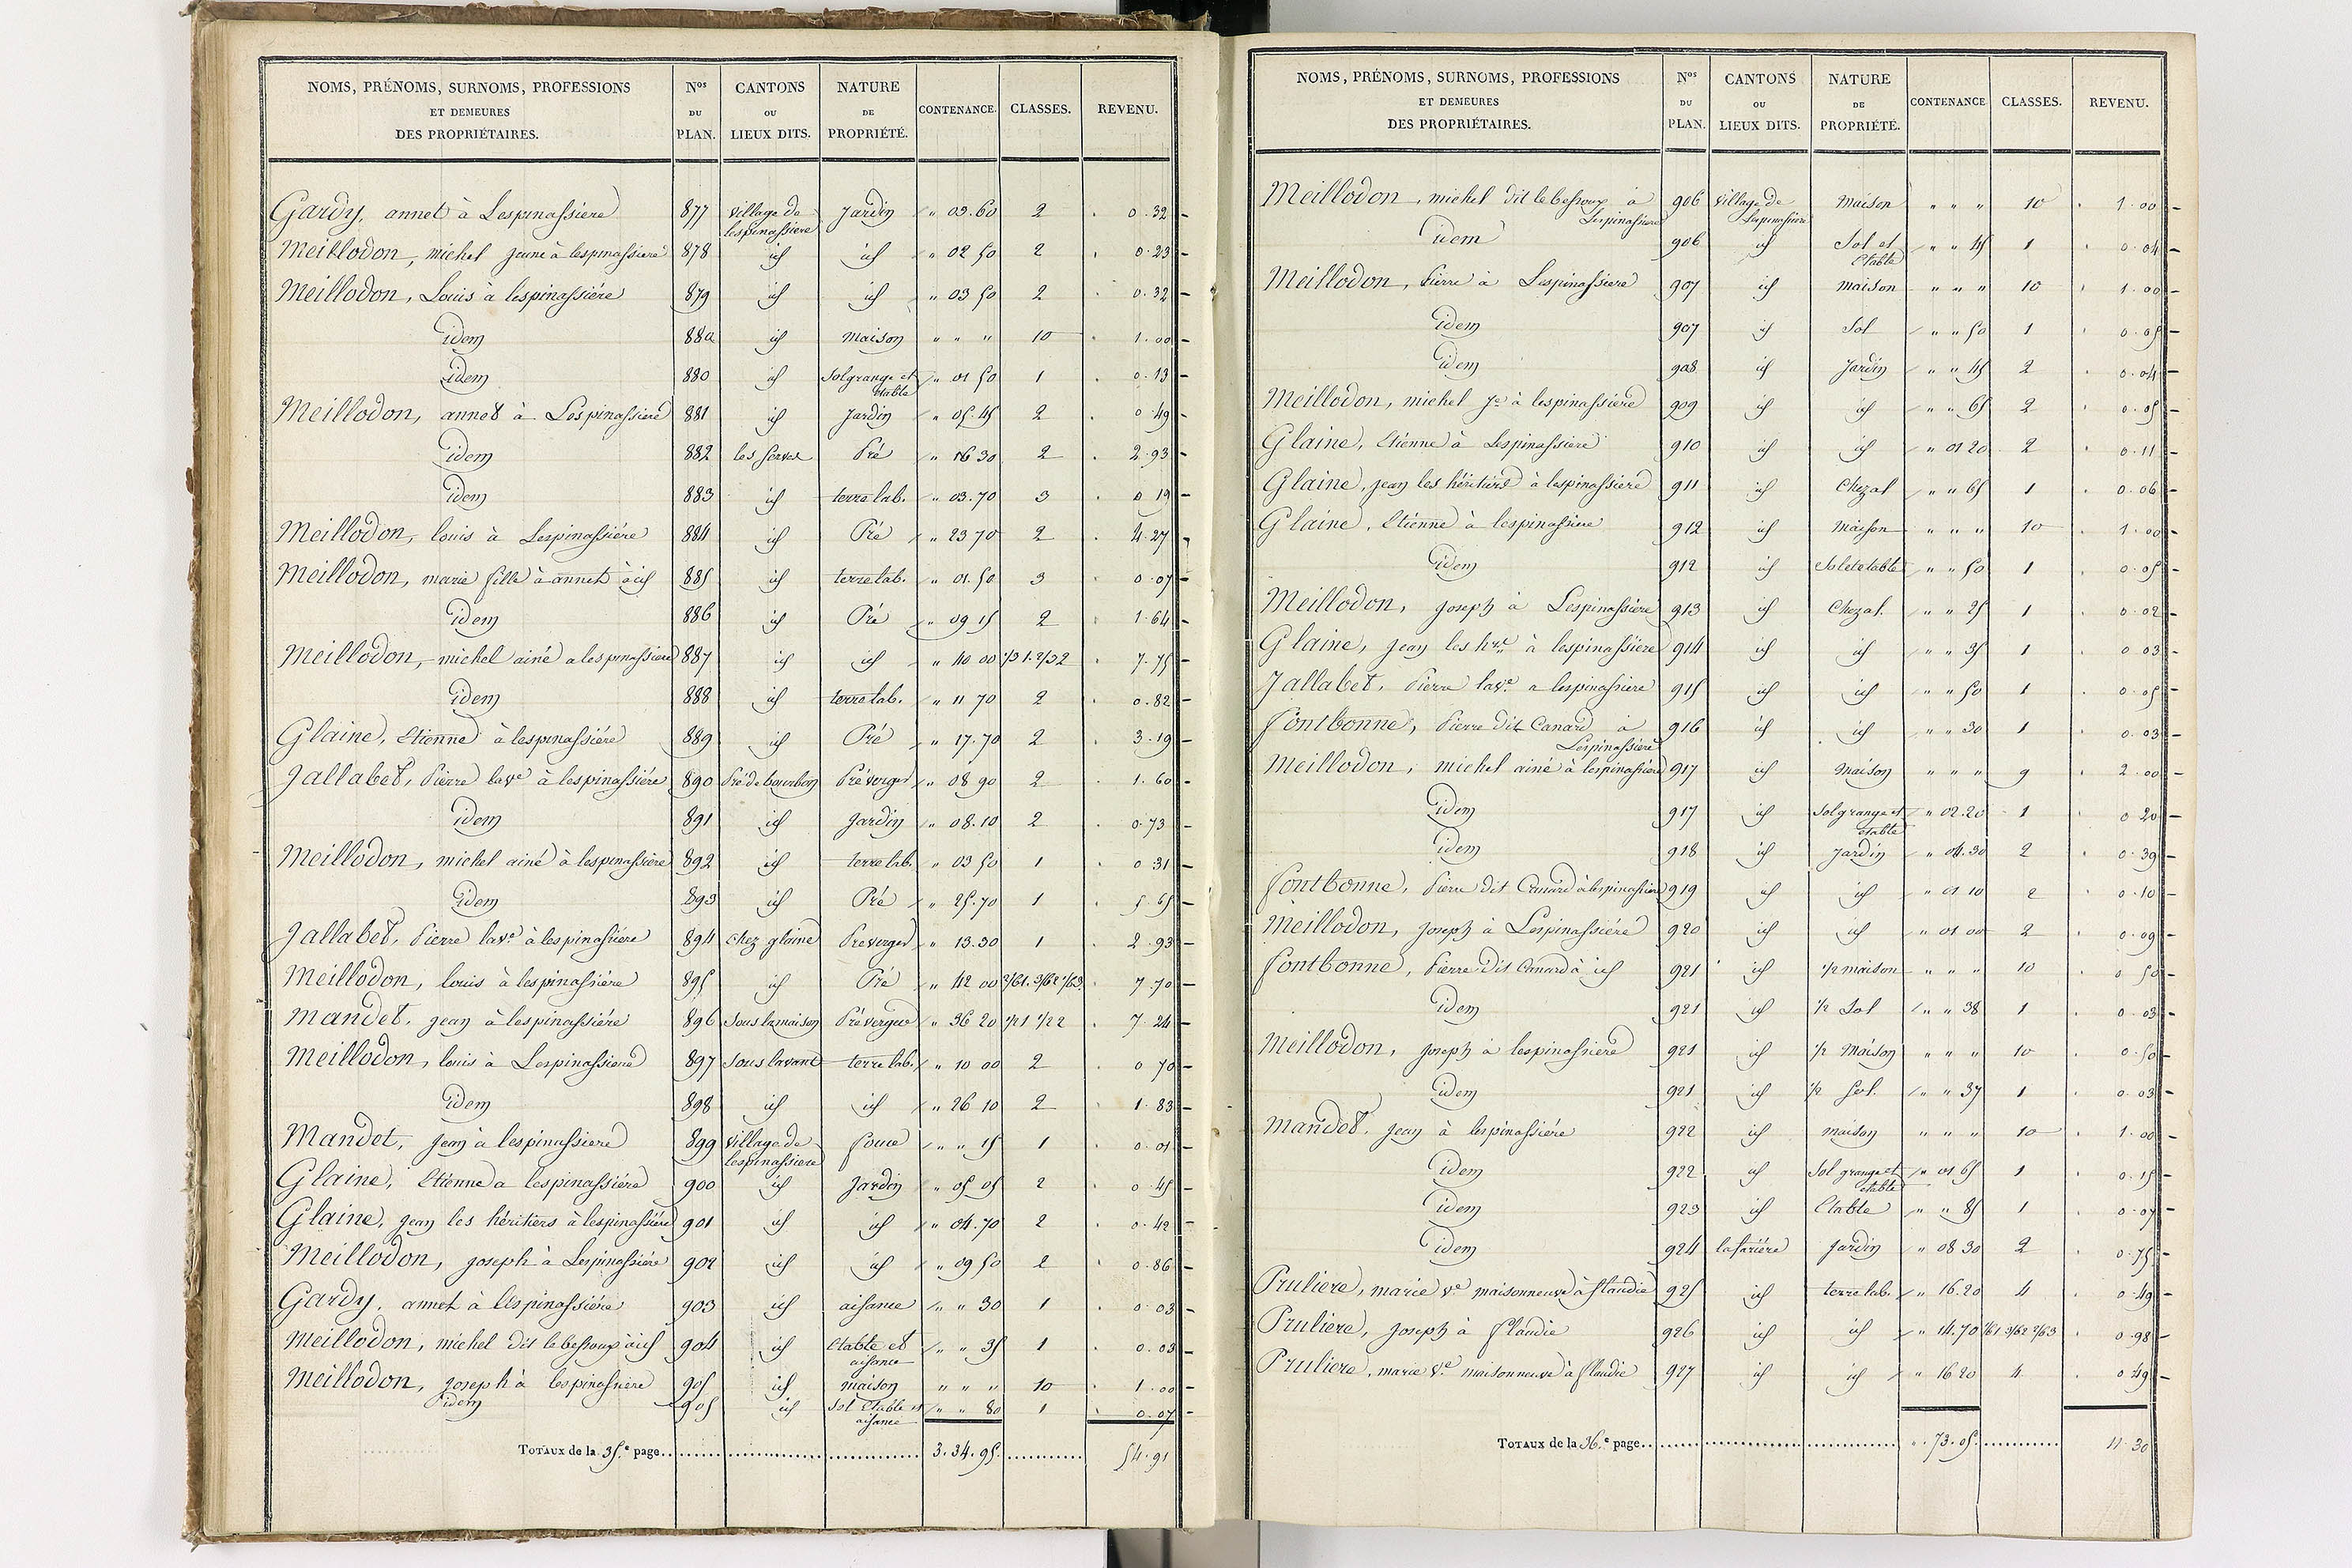 NOMS, PRÉNOMS, SURNOMS, PROFESSIONS ET DEMEURES DES PROPRIÉTAIRES. Nos DU PLAN. CANTONS OU LIEUX DITS. NATURE DE PROPRIÉTÉ. CONTENANCE. CLASSES. REVENU.
Gardy, annet à Lespinassiere 877 village de lespinassiere Jardin " 03.60 2 0.32
Meillodon, michel jeune à lespinassiere 878 id id " 02 50 2 0.23
Meillodon, Louis à lespinassiére 879 id id " 03 50 2 0.32
idem 880 id Maison " " " 10 1.00
idem 880 id Sol grange et etable " 01 50 1 0.13
Meillodon, annet à Lespinassiere 881 id Jardin " 05.45 2 0 49
idem 882 les serves Pré " 16 30 2 2.93
idem 883 id terre lab. " 03.70 3 0 19
Meillodon, louis à Lespinassiére 884 id Pré " 23 70 2 4.27
Meillodon, marie fille à annet à id 885 id terre lab. " 01.50 3 0.07
idem 886 id Pré " 09 15 2 1.64
Meillodon, michel ainé a lespinassiere 887 id id " 40 00 1/3 1. 2/3 2 7.75
idem 888 id terre lab. " 11 70 2 0.82
Glaine, Etienne à lespinassiére 889 id Pré " 17.70 2 3.19
Jallabet, Pierre la ve à lespinassiére 890 Pré de bourbon Pré verger " 08 90 2 1.60
idem 891 id Jardin " 08.10 2 0.73
Meillodon, michel ainé à lespinassière 892 id terre lab. " 03 50 1 0 31
idem 893 id Pré " 25.70 1 5 65
Jallabet, Pierre la ve à lespinassiére 894 chez glaine Pré verger " 13.30 1 2.93
Meillodon, louis à lespinassiére 895 id Pré " 42 00 2/6 1. 3/6 2 1/6 3. 7.70
Mandet, jean à lespinassiére 896 Sous la maison Pré verger " 36 20 1/2 1 1/2 2 7.24
Meillodon, louis à Lespinassiere 897 Sous lavant terre lab. " 10 00 2 0 70
idem 898 id id " 26 10 2 1.83
Mandet, Jean à lespinassiere 899 village de lespinassiere " " 15 1 0.01
Glaine, Etienne a lespinassiére 900 id Jardin " 05 05 2 0.45
Glaine, jean les héritiers à lespinassiére 901 id id " 04.70 2 0.42
Meillodon, joseph à Lespinassiére 902 id id " 09 50 2 0.86
Gardy, annet à lespinassiére 903 id aisance " " 30 1 0.03
Meillodon, michel dit le bessoux à id 904 id Etable et aisance " " 35 1 0.03
Meillodon, joseph à lespinassiere 905 id maison " " " 10 1.00
idem 905 id Sol Etable et aisance " " 80 1 0.07
TOTAUX de la 35.e page 3.34.95. 54.91
NOMS, PRÉNOMS, SURNOMS, PROFESSIONS ET DEMEURES DES PROPRIÉTAIRES. Nos DU PLAN. CANTONS OU LIEUX DITS. NATURE DE PROPRIÉTÉ. CONTENANCE CLASSES. REVENU.
Meillodon, michel dit le bessoux à Lespinassiere 906 village de Lespinassiére Maison " " " 10 1.00
idem 906 id Sol et Etable " " 45 1 0.04
Meillodon, Pierre à Lespinassiere 907 id maison " " " 10 1.00
idem 907 id Sol " " 50 1 0.05
idem 908 id Jardin " " 45 2 0.04
Meillodon, michel Je à lespinassiere 909 id id " " 65 2 0.05
Glaine, Etienne à Lespinassiere 910 id id " 01 20 2 0.11
Glaine, jean les héritiérs à lespinassiere 911 id Chezal " " 65 1 0.06
Glaine, Etienne à lespinassiere 912 id Maison " " " 10 1.00
idem 912 id Sol et etable " " 50 1 0.05
Meillodon, joseph à Lespinassiere 913 id Chezal. " " 25 1 0.02
Glaine, jean les hrs à lespinassiere 914 id id " " 35 1 0 03
Jallabet, Pierre la ve a lespinassiere 915 id id " " 50 1 0.05
Fontbonne, Pierre dit Canard à Lespinassiere 916 id id " " 30 1 0.03
Meillodon, michel ainé à lespinassiére 917 id Maison " " " 9 2.00
idem 917 id Sol grange et etable " 02.20 1 0 20
idem 918 id Jardin " 04.30 2 0.39
Fontbonne, Pierre dit Canard à lespinassiere 919 id id " 01 10 2 0.10
Meillodon, joseph à Lespinassiére 920 id id " 01 00 2 0.09
Fontbonne, Pierre dit Canard à id 921 id 1/2 maison " " " 10 0 50
idem 921 id 1/2 Sol " " 38 1 0.03
Meillodon, joseph à lespinassiere 921 id 1/2 Maison " " " 10 0.50
idem 921 id 1/2 Sol. " " 37 1 0.03
Mandet, jean à lespinassiére 922 id maison " " " 10 1.00
idem 922 id Sol grange et etable " 01 65 1 0.15
idem 923 id Etable " " 85 1 0.07
idem 924 Jardin " 08 30 2 0.75
Pruliere, marie ve maisonneuve à flaudie 925 id terre lab. " 16.20 4 0.49
Pruliere, joseph à flaudie 926 id id " 14.70 1/6 1 3/6 2 2/6 3 0.98
Pruliere, marie ve maisonneuve à flaudie 927 id id " 16 20 4 0.49
TOTAUX de la 36.e page " 73.05. 11.30